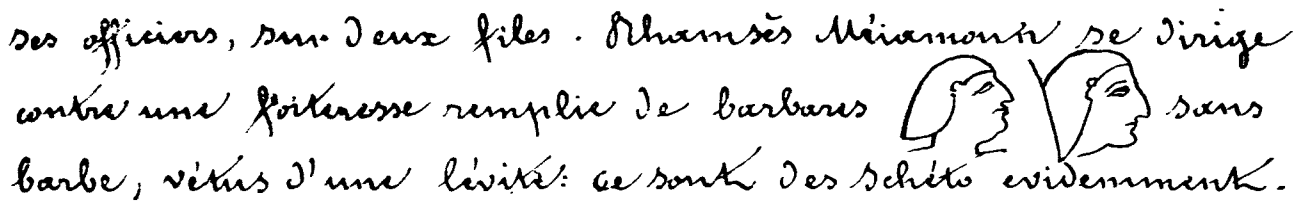 ses officiers, sur deux files. Rhamsès Méiamoun se dirige
contre une forteresse remplie de barbares sans
barbe, vêtus d'une lévite: ce sont des Schéto evidemment.